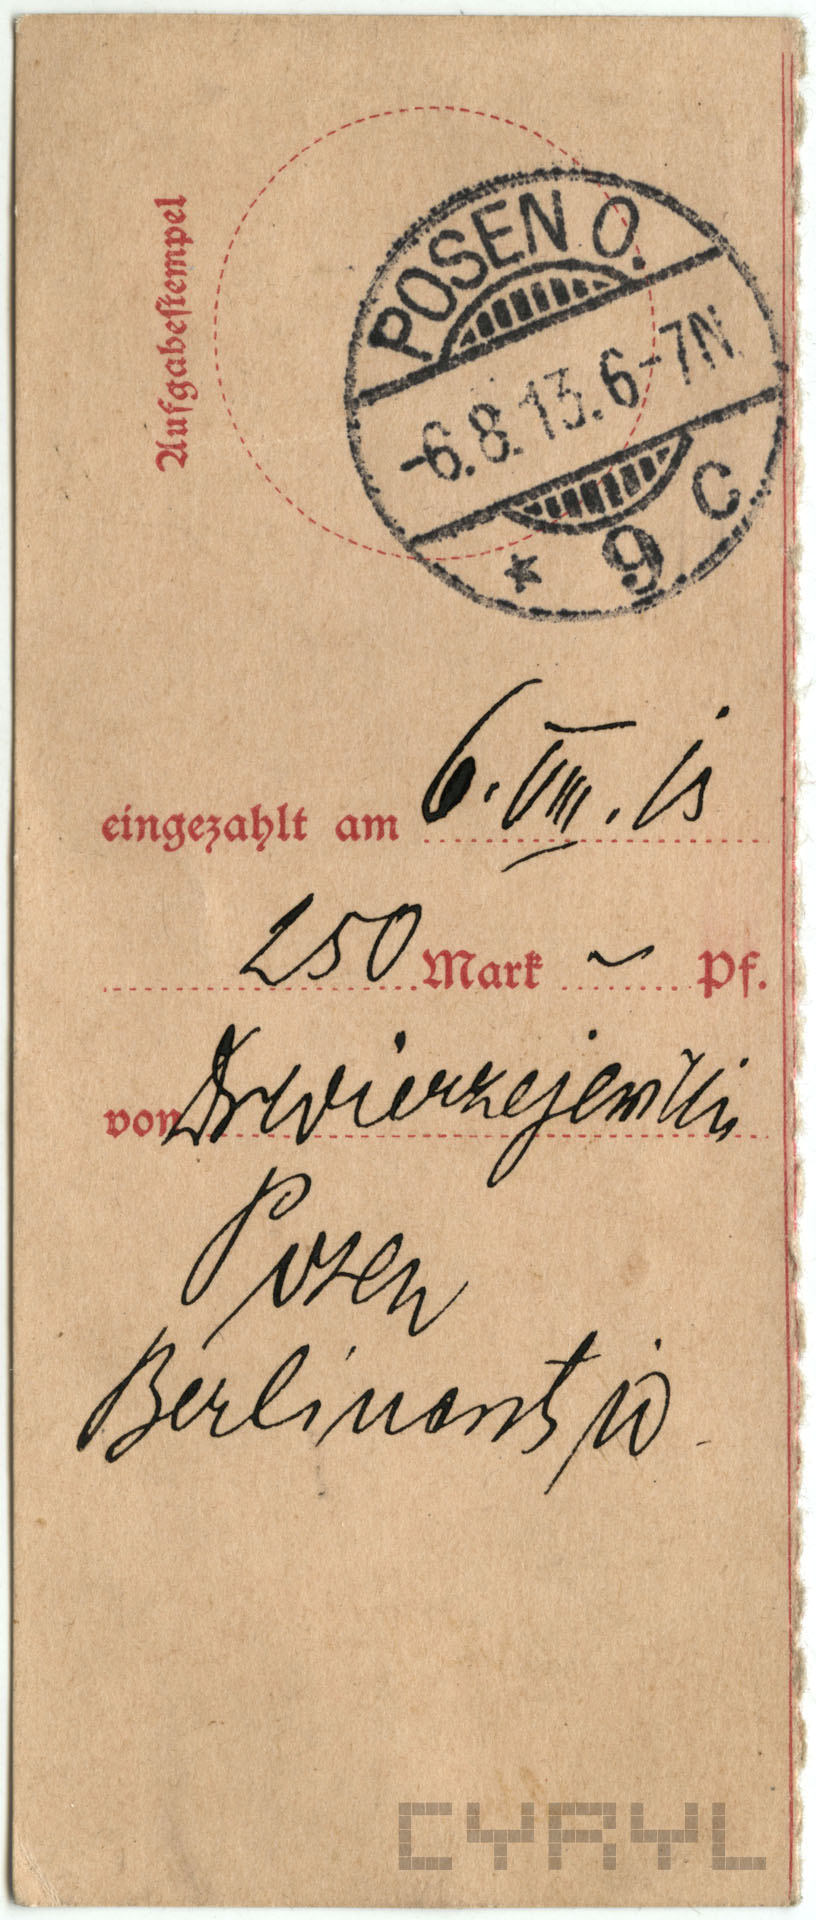 Aufgabestempel
POSEN O.
-6.8.13.6-7N
* 9 c
eingezahlt am 6. VIII. 13
250 Mark ~ Pf.
von Drwierzejewski
Posen
Berlinerstr 10
CYRYL